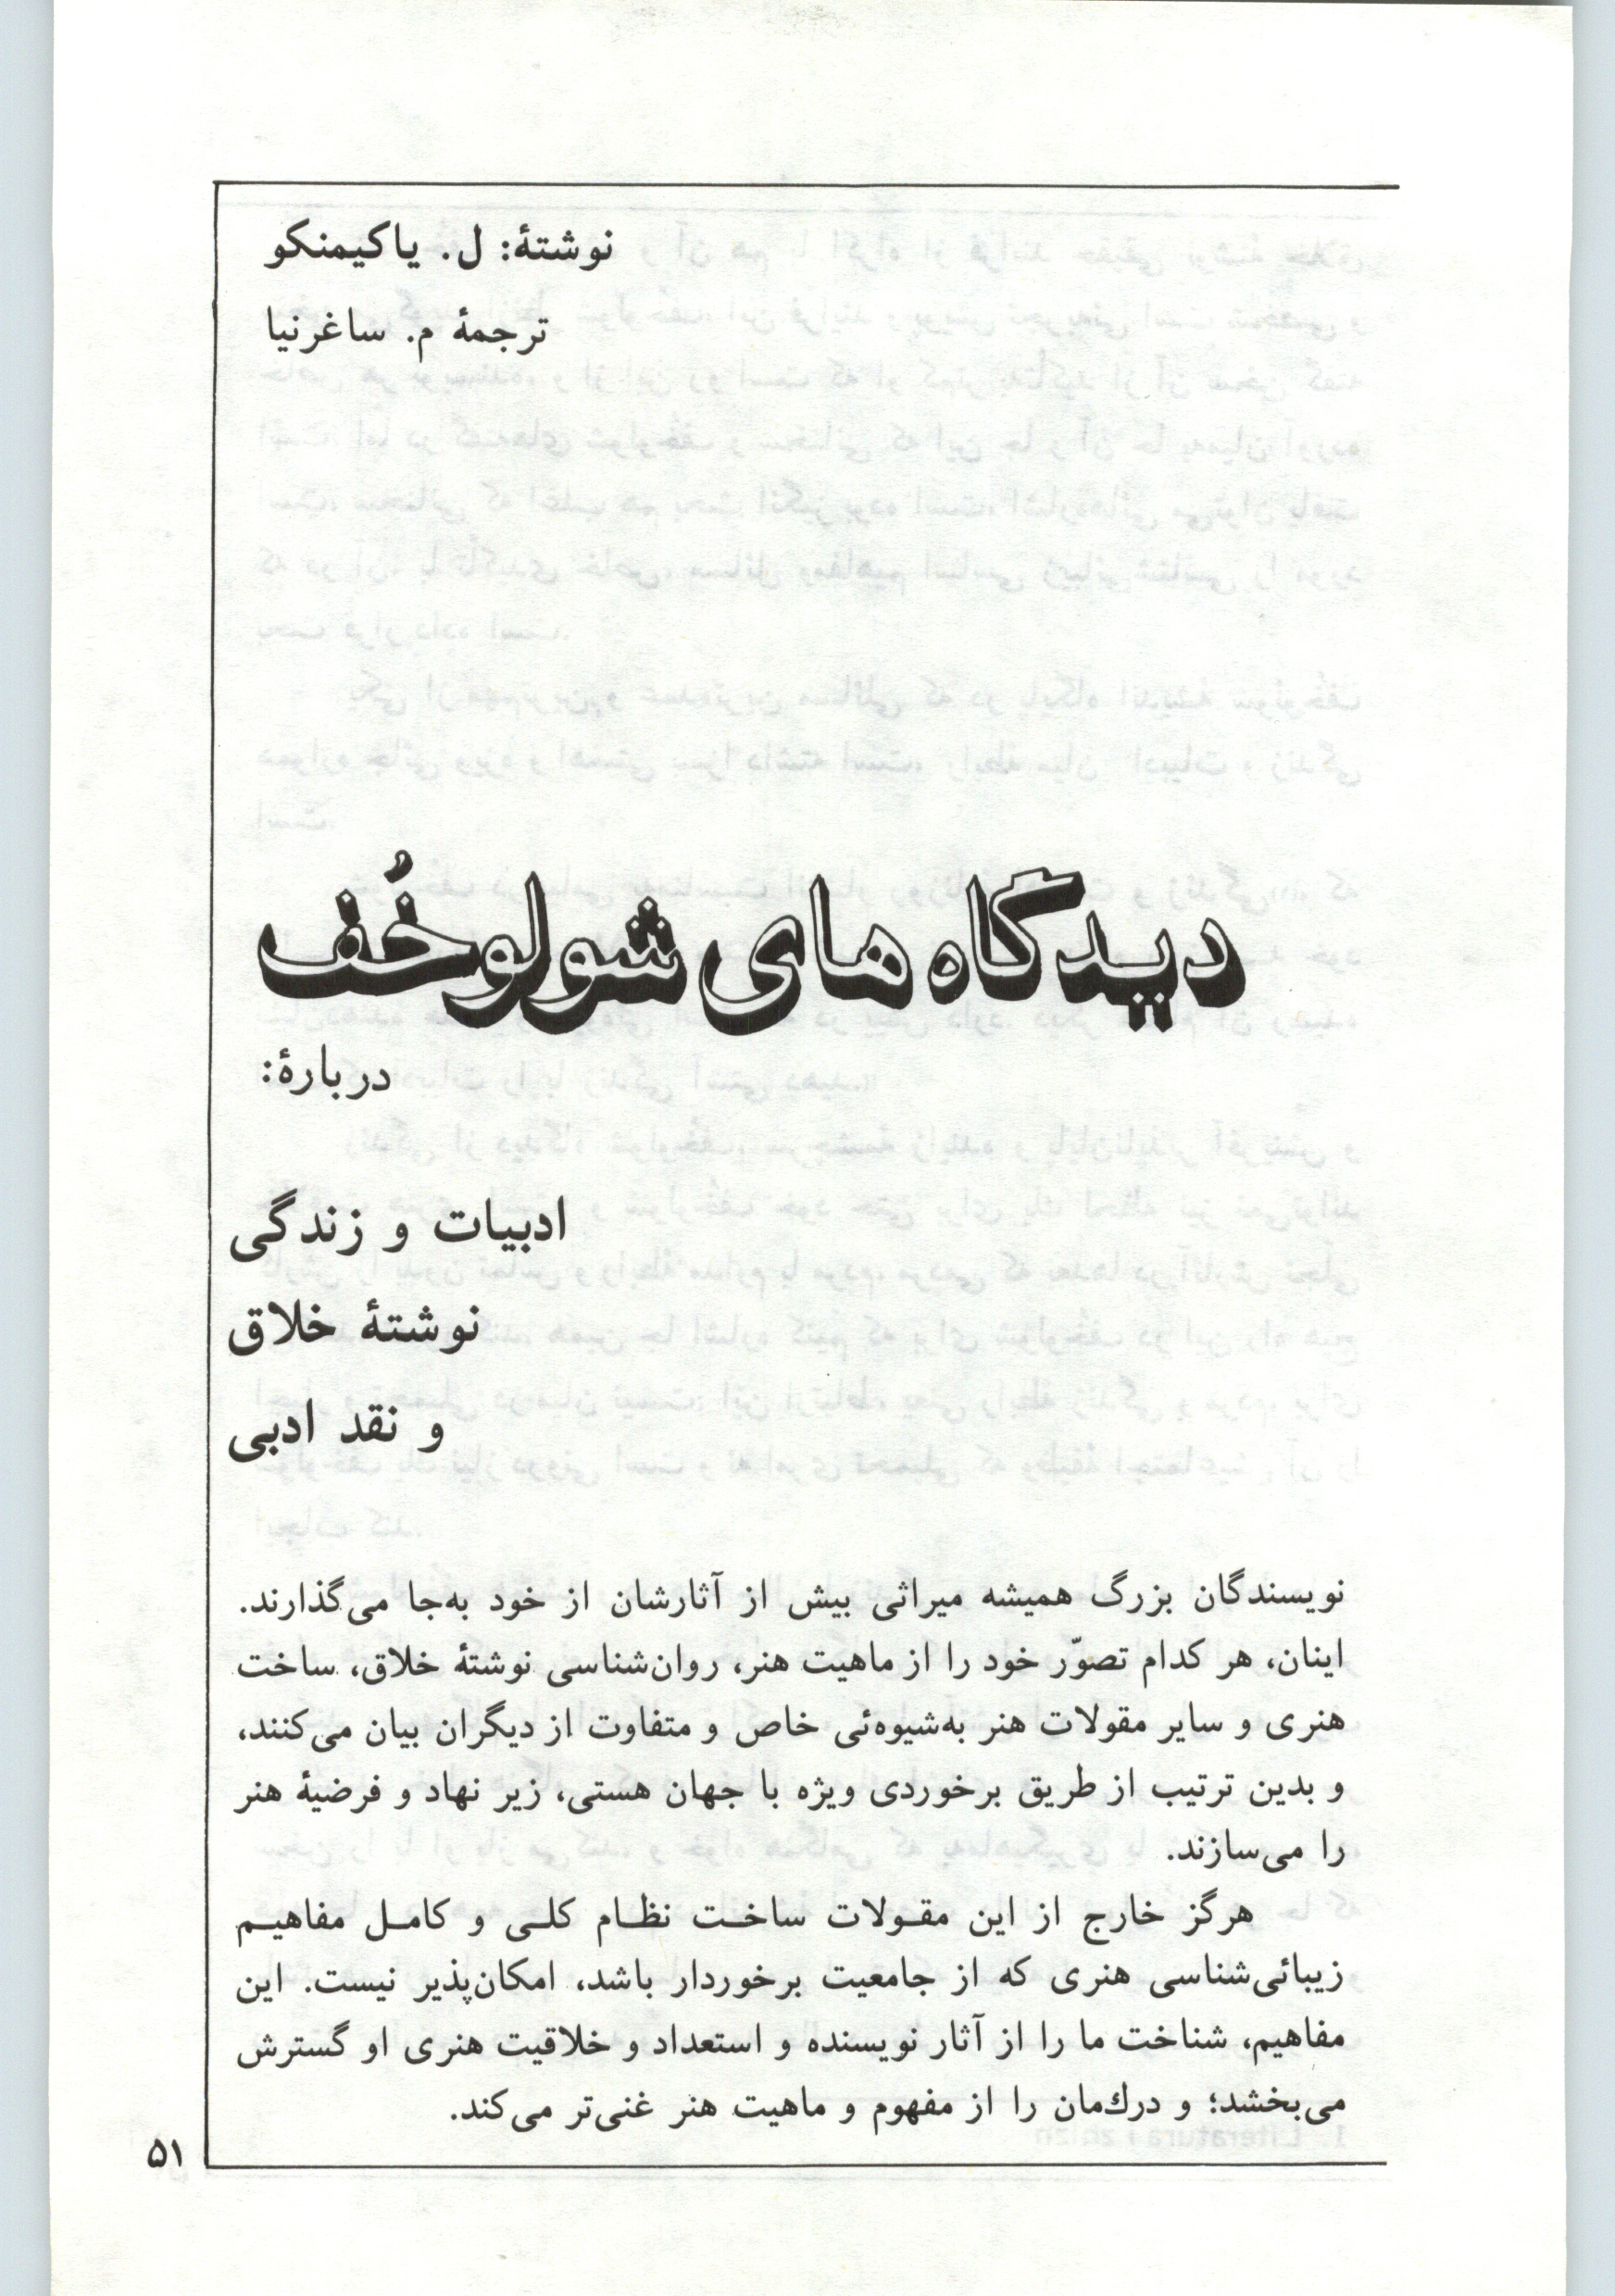 نوشتهٔ: ل. یاکیمنکو
ترجمهٔ م. ساغرنیا
دیدگاه های شولوخُف
دربارهٔ:
ادبیات و زندگی
نوشتهٔ خلاق
و نقد ادبی
نویسندگان بزرگ همیشه میراثی بیش از آثارشان از خود به‌جا می‌گذارند.
اینان، هر کدام تصوّر خود را از ماهیت هنر، روان‌شناسی نوشتهٔ خلاق، ساخت
هنری و سایر مقولات هنر به‌شیوه‌ئی خاص و متفاوت از دیگران بیان می‌کنند،
و بدین ترتیب از طریق برخوردی ویژه با جهان هستی، زیر نهاد و فرضیهٔ هنر
را می‌سازند.
هرگز خارج از این مقولات ساخت نظام کلی و کامل مفاهیم
زیبائی‌شناسی هنری که از جامعیت برخوردار باشد، امکان‌پذیر نیست. این
مفاهیم، شناخت ما را از آثار نویسنده و استعداد و خلاقیت هنری او گسترش
می‌بخشد؛ و درك‌مان را از مفهوم و ماهیت هنر غنی‌تر می‌کند.
۵۱